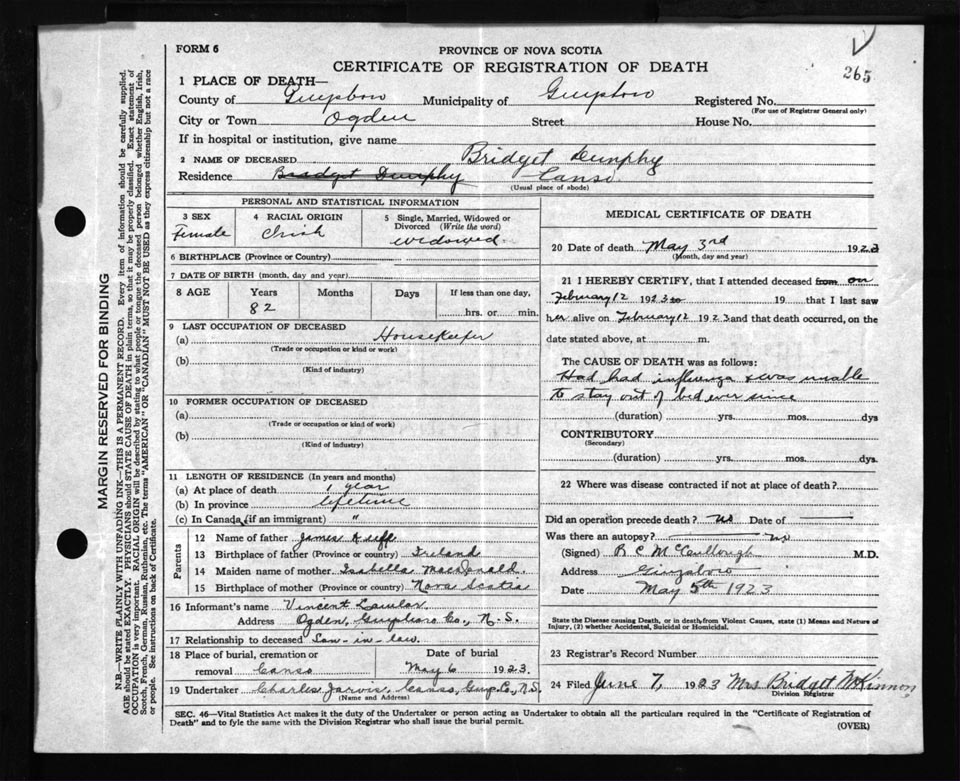 FORM 6
PROVINCE OF NOVA SCOTIA
265
CERTIFICATE OF REGISTRATION OF DEATH
1 PLACE OF DEATH—
County of Guysboro Municipality of Guysboro Registered No.
(For use of Registrar General only)
City or Town Ogden Street House No.
If in hospital or institution, give name
2 NAME OF DECEASED Bridget Dunphy
Residence Bridget Dunphy Canso
(Usual place of abode)
PERSONAL AND STATISTICAL INFORMATION
3 SEX
Female
4 RACIAL ORIGIN
Irish
5 Single, Married, Widowed or
Divorced (Write the word)
widowed
6 BIRTHPLACE (Province or Country)
7 DATE OF BIRTH (month, day and year)
8 AGE Years Months Days If less than one day,
82 hrs. or min.
9 LAST OCCUPATION OF DECEASED
(a) Housekeeper
(Trade or occupation or kind or work)
(b)
(Kind of industry)
10 FORMER OCCUPATION OF DECEASED
(a)
(Trade or occupation or kind of work)
(b)
(Kind of industry)
11 LENGTH OF RESIDENCE (In years and months)
(a) At place of death 1 year
(b) In province lifetime
(c) In Canada (if an immigrant) "
Parents
12 Name of father James
13 Birthplace of father (Province or country) Ireland
14 Maiden name of mother Isabella MacDonald
15 Birthplace of mother (Province or country) Nova Scotia
16 Informant's name Vincent Lawlor
Address Ogden, Guysboro Co., N.S.
17 Relationship to deceased Son-in-law
18 Place of burial, cremation or Date of burial
removal Canso May 6 1923.
19 Undertaker Charles Jarvis, Canso, Guys. Co., N.S.
(Name and Address)
MEDICAL CERTIFICATE OF DEATH
20 Date of death May 3rd 1923
(Month, day and year)
21 I HEREBY CERTIFY, that I attended deceased from on
February 12 1923 to 19 that I last saw
her alive on February 12 1923 and that death occurred, on the
date stated above, at m.
The CAUSE OF DEATH was as follows:
Had had influenza & was unable
to stay out of bed ever since
(duration) yrs. mos. dys
CONTRIBUTORY
(Secondary)
(duration) yrs. mos. dys.
22 Where was disease contracted if not at place of death?
Did an operation precede death? no Date of
Was there an autopsy? no
(Signed) B C McCullough M.D.
Address Guysboro
Date May 5th 1923
State the Disease causing Death, or in death from Violent Causes, state (1) Means and Nature of
Injury, (2) whether Accidental, Suicidal or Homicidal.
23 Registrar's Record Number
24 Filed June 7, 1923 Mrs Bridgett McKinnon
Division Registrar
SEC. 46—Vital Statistics Act makes it the duty of the Undertaker or person acting as Undertaker to obtain all the particulars required in the "Certificate of Registration of
Death" and to fyle the same with the Division Registrar who shall issue the burial permit.
(OVER)
MARGIN RESERVED FOR BINDING
N.B.—WRITE PLAINLY WITH UNFADING INK—THIS IS A PERMANENT RECORD. Every item of information should be carefully supplied.
AGE should be stated EXACTLY. PHYSICIANS should STATE CAUSE OF DEATH in plain terms, so that it may be properly classified. Exact statement of
OCCUPATION is very important. RACIAL ORIGIN will be described by stating to what people or tongue the deceased person belonged whether English, Irish,
Scotch, French, German, Russian, Ruthenian, etc. The terms "AMERICAN" or "CANADIAN" MUST NOT BE USED as they express citizenship but not a race
or people. See instructions on back of Certificate.